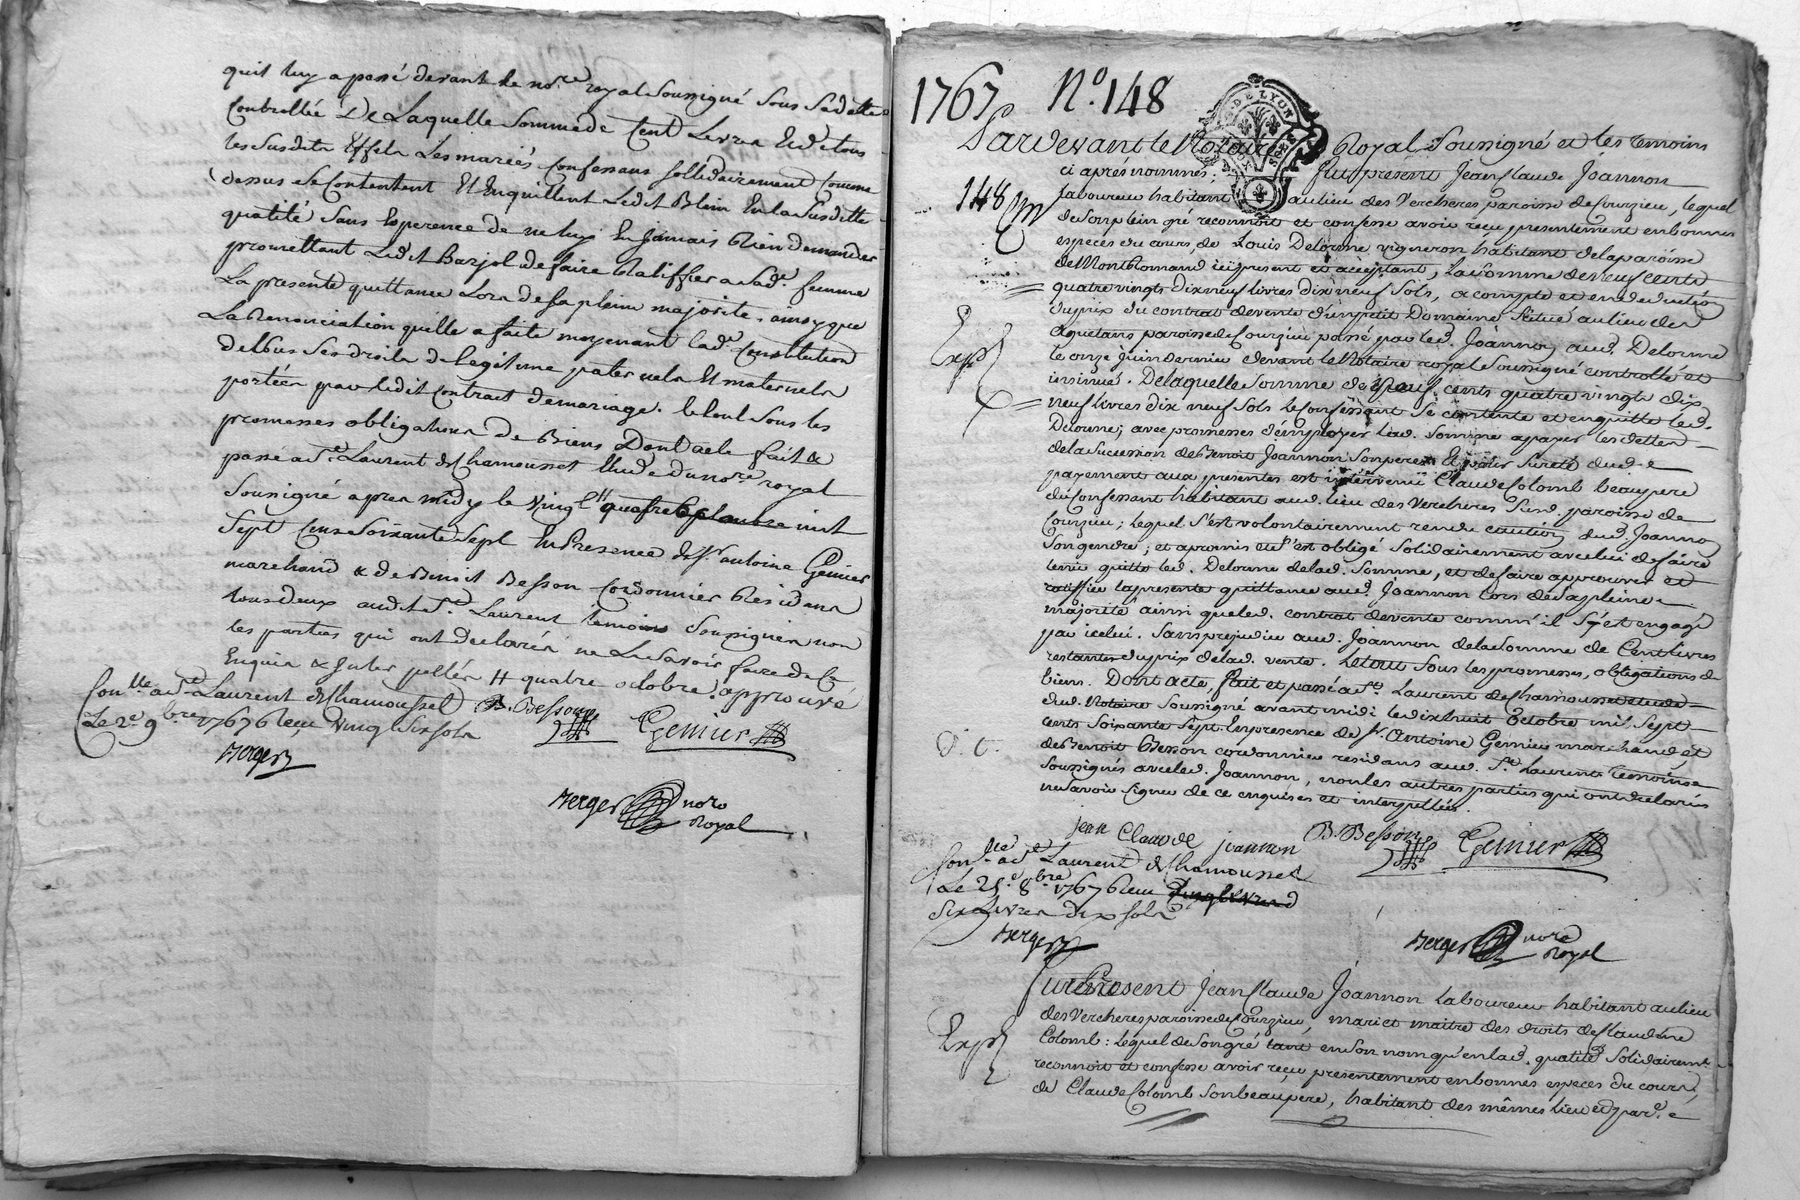 quil luy a passé devant le no.re royal soussigné sous sa datte
Controllée De Laquelle Somme de Cent Livres Et de tous
les susdits Effets Les mariés Confessans sollidairement Comme
dessus se Contentent Et Enquittent Ledit Blein En la susditte
qualité sans Esperence de ne luy En jamais Rien demander
promettant Ledit Barjol de faire Ratiffier a sad.e femme
La presente quittance Lors de sa pleine majorité, ainsy que
La Renonciation quelle a faite moyenant lad.e Constitution
de tous ses droits de legitime paternels Et maternels
portées par ledit Contract de mariage. le tout sous les
promesses obligations de Biens Dont acte fait &
passé a S.t Laurent de Chamousset Etude du no.re royal
soussigné apres midy le vingt H quatre septembre mil
sept Cens soixante sept En Presence de S.r antoine Genier
marchand & de Benoit Besson Cordonnier Residens
tous deux audit S.t Laurent temoins soussignés non
les parties qui ont declarés ne Le savoir faire de ce
Enquis & Interpellés H quatre octobre approuvé
Con.lle a S.t Laurent de Chamousset
Le 2.e 9.bre 1767 Receu Vingt six sols
Berger
B. Besson
Genier
Berger no.re
Royal
1767 N.o 148
DE LYON
Pardevant le Notaire Royal Soussigné et les temoins
ci aprés nommés; fut present Jean Claude Joannon
148
laboureur habitant au lieu des Verchères paroisse de Courzieu, lequel
de son plein gré reconnoit et confesse avoir reçu presentement en bonnes
especes du cours, de Louis Delorme vigneron habitant de la paroisse
de Montromand ici present et acceptant, la somme de neuf cents
quatre vingts dix neuf livres dix neuf sols, a compte et en deduction
du prix du contrat de vente d'un petit Domaine situé au lieu des
paroisse de Courzieu passé par led. Joannon aud. Delorme
Exp.é
le onze juin dernier devant le Notaire royal Soussigné controllé et
insinué. De laquelle Somme de neuf cents quatre vingts dix
neuf livres dix neuf sols le confessant se contente et en quitte led.
Delorme; avec promesses d'employer lad. somme a payer les dettes
de la succession de Benoit Joannon son pere. Et pour sureté dud.
payement aux presentes est intervenu Claude Colomb beaupere
du confessant habitant aud. lieu des Verchères susd. paroisse de
Courzieu; lequel s'est volontairement rendu caution dud. Joannon
son gendre; et a promis et s'est obligé solidairement avec lui de faire
tenir quitte led. Delorme de lad. somme, et de faire approuver et
ratiffier la presente quittance aud. Joannon lors de sa pleine
majorité ainsi que led. contrat de vente comm'il s'y est engagé
par icelui. Sans prejudice aud. Joannon de la somme de Cent livres
restantes du prix de lad. vente. Le tout sous les promesses, obligations de
biens. Dont acte, fait et passé a S.t Laurent de chamousset etude
dud. Notaire soussigné avant midi le dix huit Octobre mil sept
cents soixante sept. En presence de S.r Antoine Genier marchand, et
de Benoit Besson cordonnier residans aud. S.t Laurent temoins
soussignés avec led. Joannon, non les autres parties qui ont declarés
ne savoir signer de ce enquises et interpellées.
jean Claude joannon
B. Besson
Genier
Con.lle a S.t Laurent de Chamousset
Le 25.e 8.bre 1767 Receu
Six Livres dix sols
Berger
Berger no.re
Royal
Fut Present Jean Claude Joannon laboureur habitant au lieu
des Verchères paroisse de Courzieu, mari et maitre des droits de Claudine
Exp.é
Colomb: lequel de son gré tant en son nom qu'en lad. qualité, solidairem.t
reconnoit et confesse avoir reçu presentement en bonnes especes du cours,
de Claude Colomb son beaupere, habitant des mêmes lieu et par.e